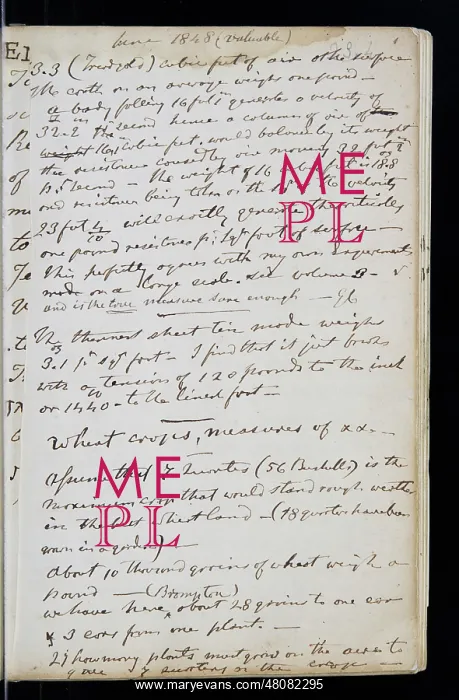 June 1848 (valuable)
13.3 (Tredgold) cubic feet of air at the surface
of the earth on an average weighs one pound —
a body falling 16 feet generates a velocity of
32.2 in the second hence a column of air of the
weight 16 cubic feet, would balance by its weight
the resistance caused by air moving 32 feet
pr second — the weight of 16
and resistance being taken as the the velocity
23 feet 4/10 will exactly generate theoretically
one pound resistance pr sqr foot of surface —
This perfectly agrees with my own experiments
made on a large scale. see volume B —
and is the true measure sure enough — GC
The thinnest sheet tin made weighs
3.1 pr sqr foot — I find that it just breaks
with a tension of 120 pounds to the inch
or 1440 — to the lineal foot —
Wheat crops, measures of xx. —
Assume that 7 Quarters (56 Bushells) is the
maximum crop that would stand rough weather
in the best wheat land — (18 quarters have been
grown in a garden) —
About 10 thousand grains of wheat weigh a
pound — (Brompton)
we have here about 28 grains to one ear
& 3 ears from one plant. —
2) how many plants must grow on the acre to
give 7 quarters in the crop —
ME
PL
ME
PL
www.maryevans.com/48082295